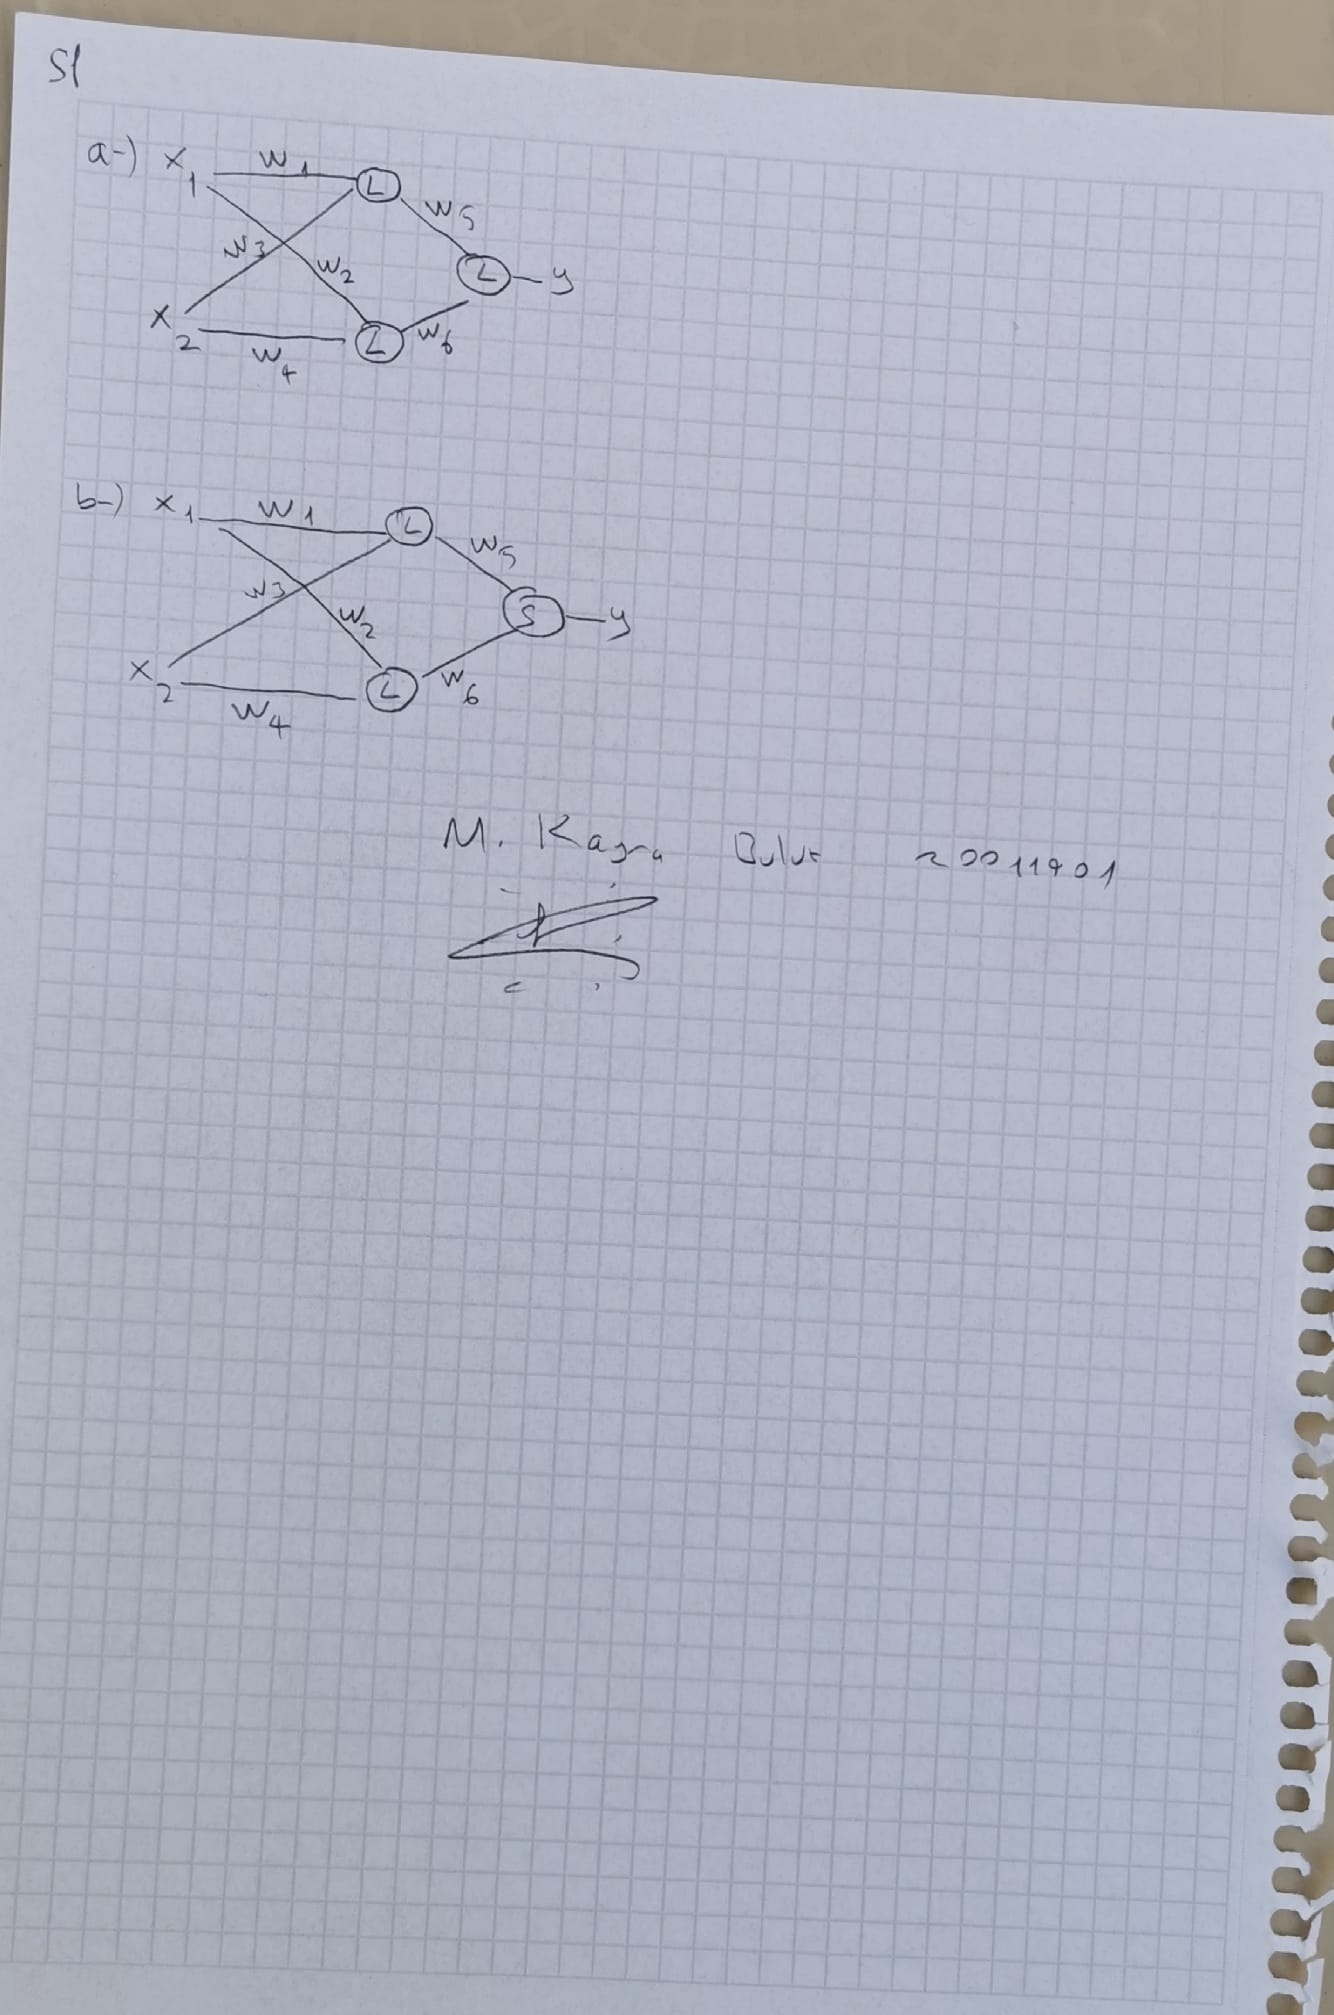 S1
a-) x1 w1 L w5
w3 w2 L y
x2 w4 L w6
b-) x1 w1 L w5
w3 w2 S y
x2 w4 L w6
M. Kagra Bulut 20011901